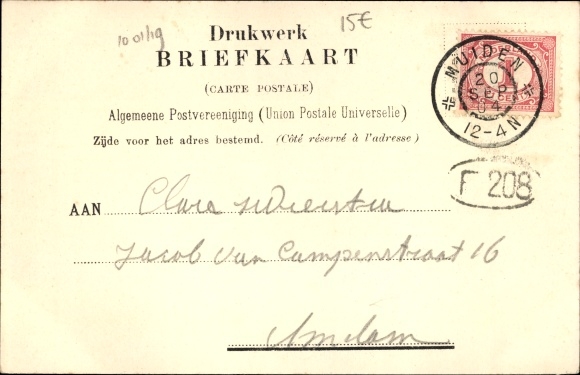 10 01/19
15€
Drukwerk
BRIEFKAART
(CARTE POSTALE)
Algemeene Postvereeniging (Union Postale Universelle)
Zijde voor het adres bestemd. (Côté réservé à l'adresse)
MUIDEN
20
SEP
04
12-4N
CENT
F 208
AAN Clara
Jacob van Campenstraat 16
Amsterdam